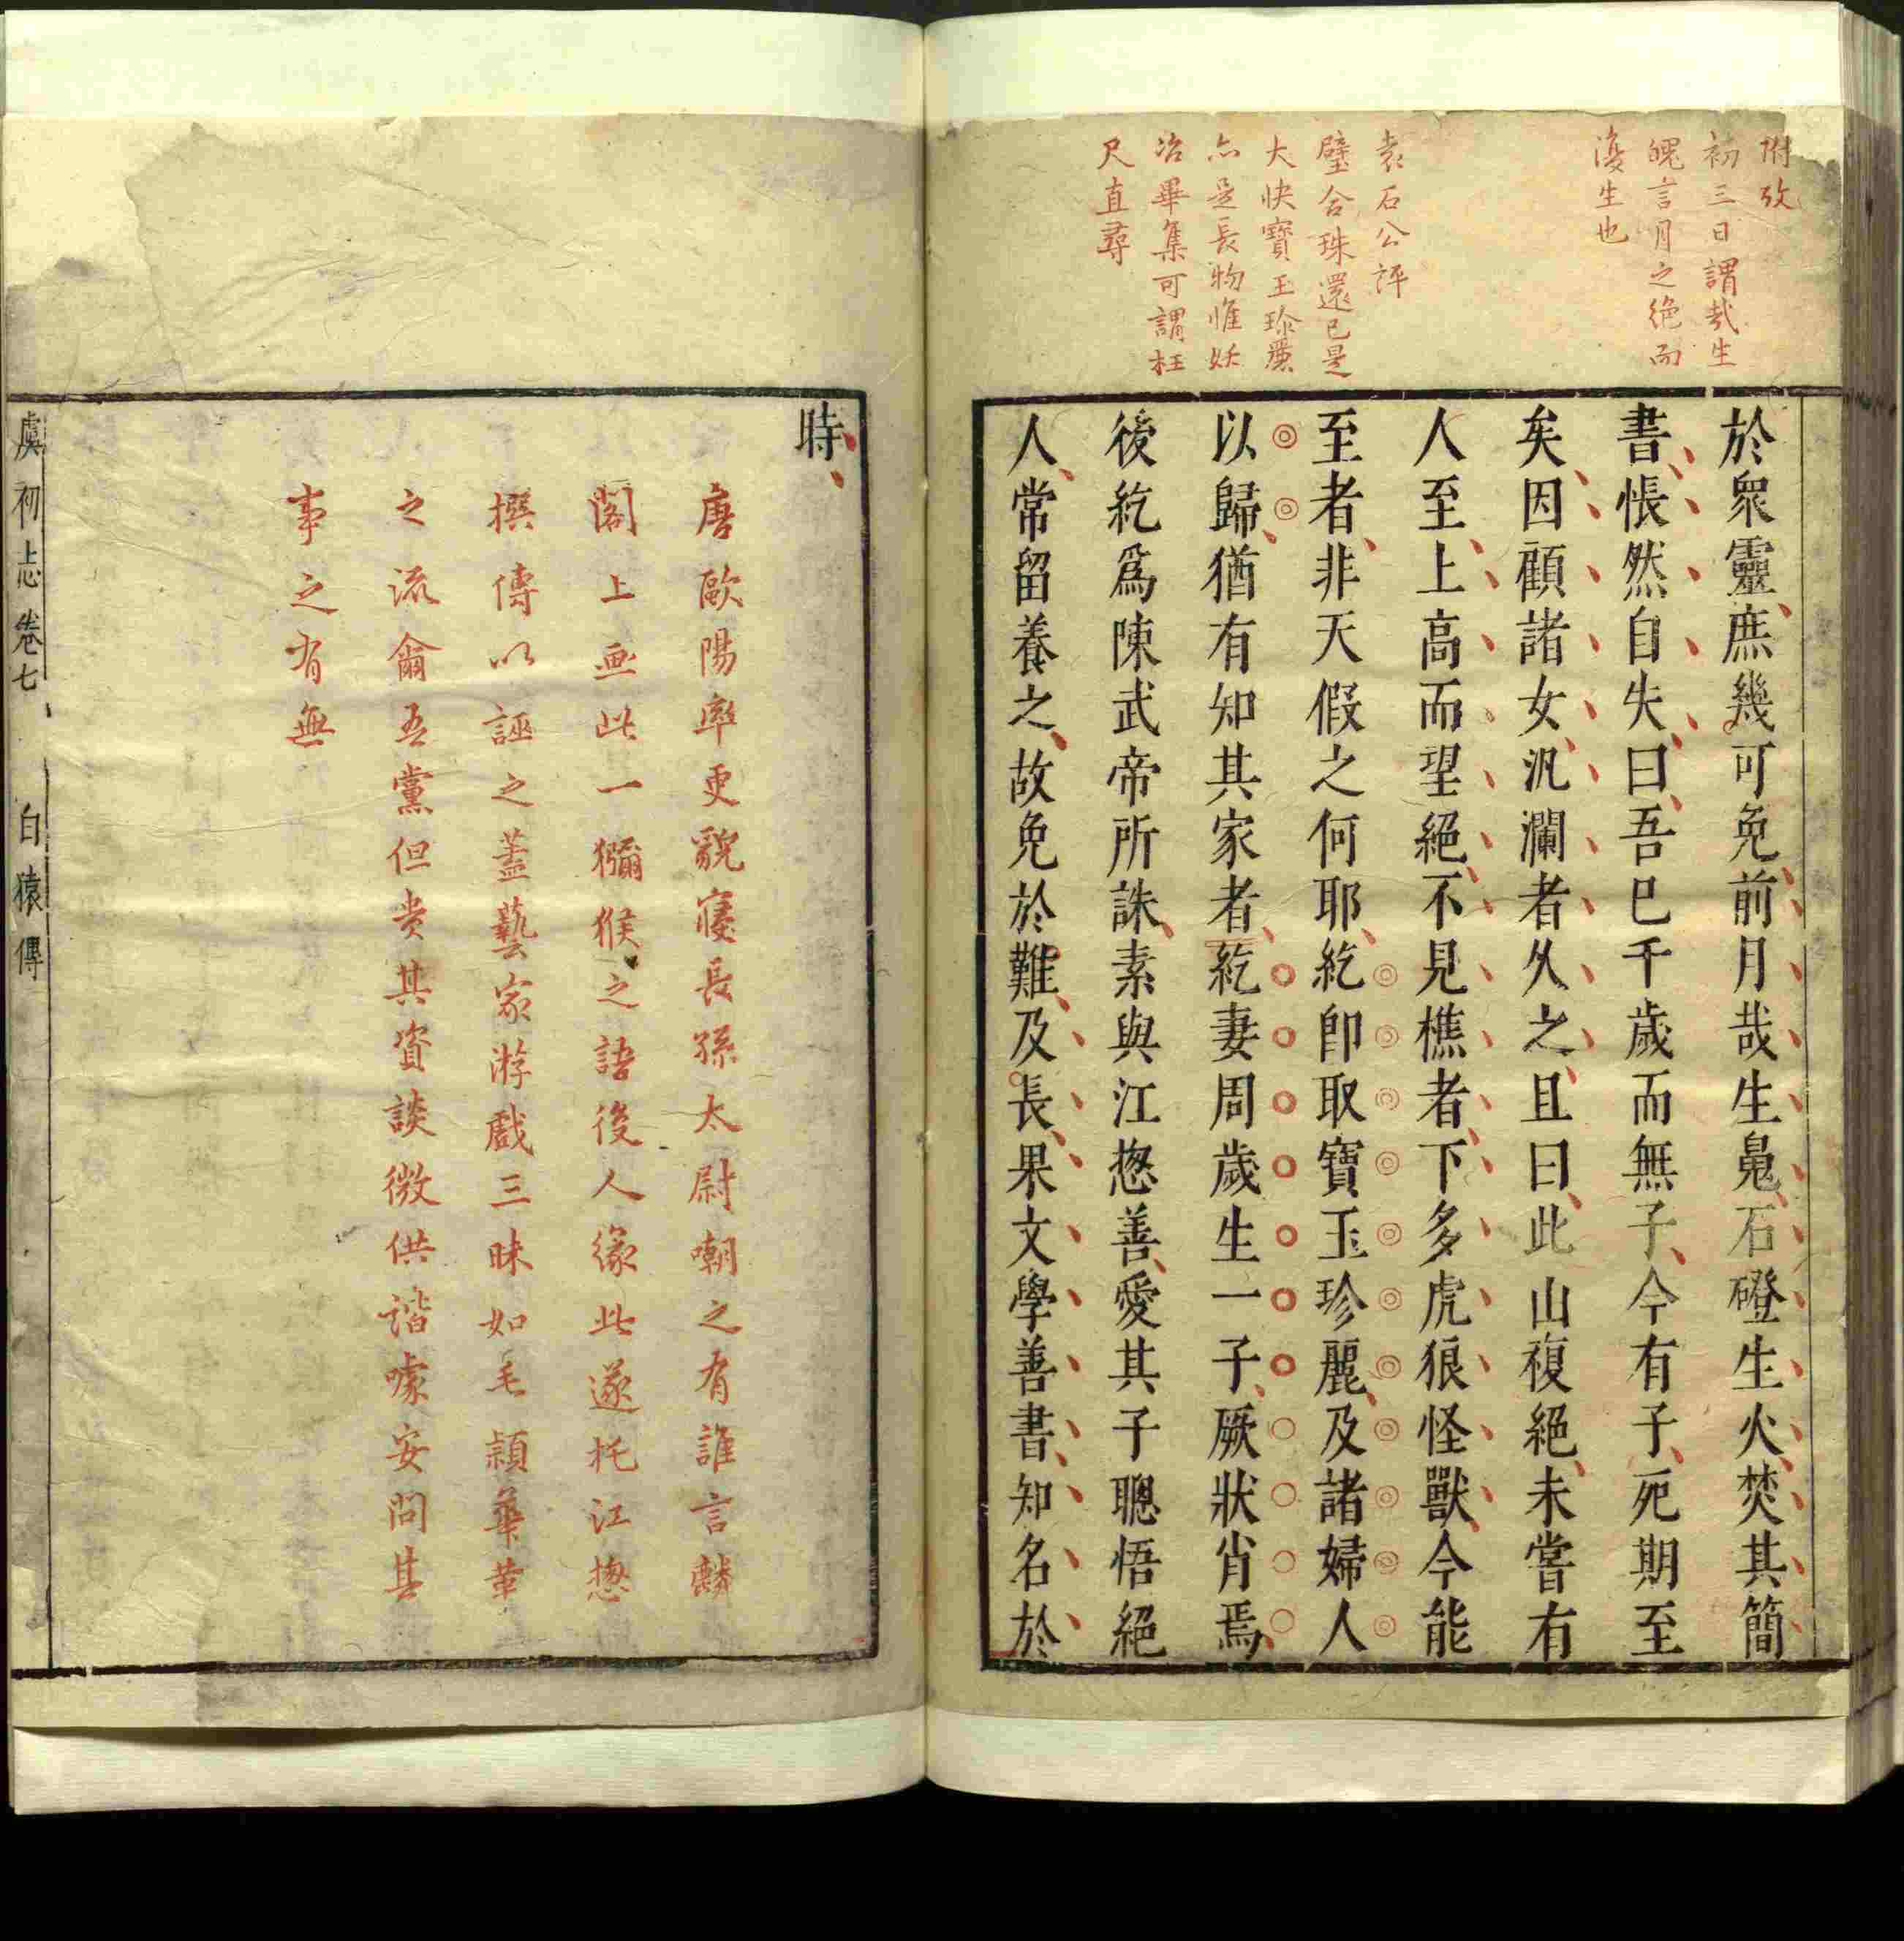 附攷
初三日謂哉生
魄言月之絶而
復生也
袁石公評
璧合珠還已是
大快寶玉珍麗
亦是長物惟妖
冶畢集可謂枉
尺直尋
於衆靈庶幾可免前月哉生鬼石磴生火焚其簡
書悵然自失曰吾巳千歲而無子今有子死期至
矣因顧諸女汎瀾者久之且曰此山複絕未嘗有
人至上高而望絕不見樵者下多虎狼怪獸今能
至者非天假之何耶紇卽取寶玉珍麗及諸婦人
以歸猶有知其家者紇妻周歲生一子厥狀肖焉
後紇爲陳武帝所誅素與江揔善愛其子聰悟絕
人常留養之故免於難及長果文學善書知名於
時
唐歐陽率更貌寢長孫太尉嘲之有誰言麟
閣上畫此一獼猴之語後人緣此遂托江揔
撰傳以誣之蓋藝家游戲三昧如毛頴華革
之流爾吾黨但貴其資談微供諧噱安問其
事之有無
虞初志卷七 白猿傳